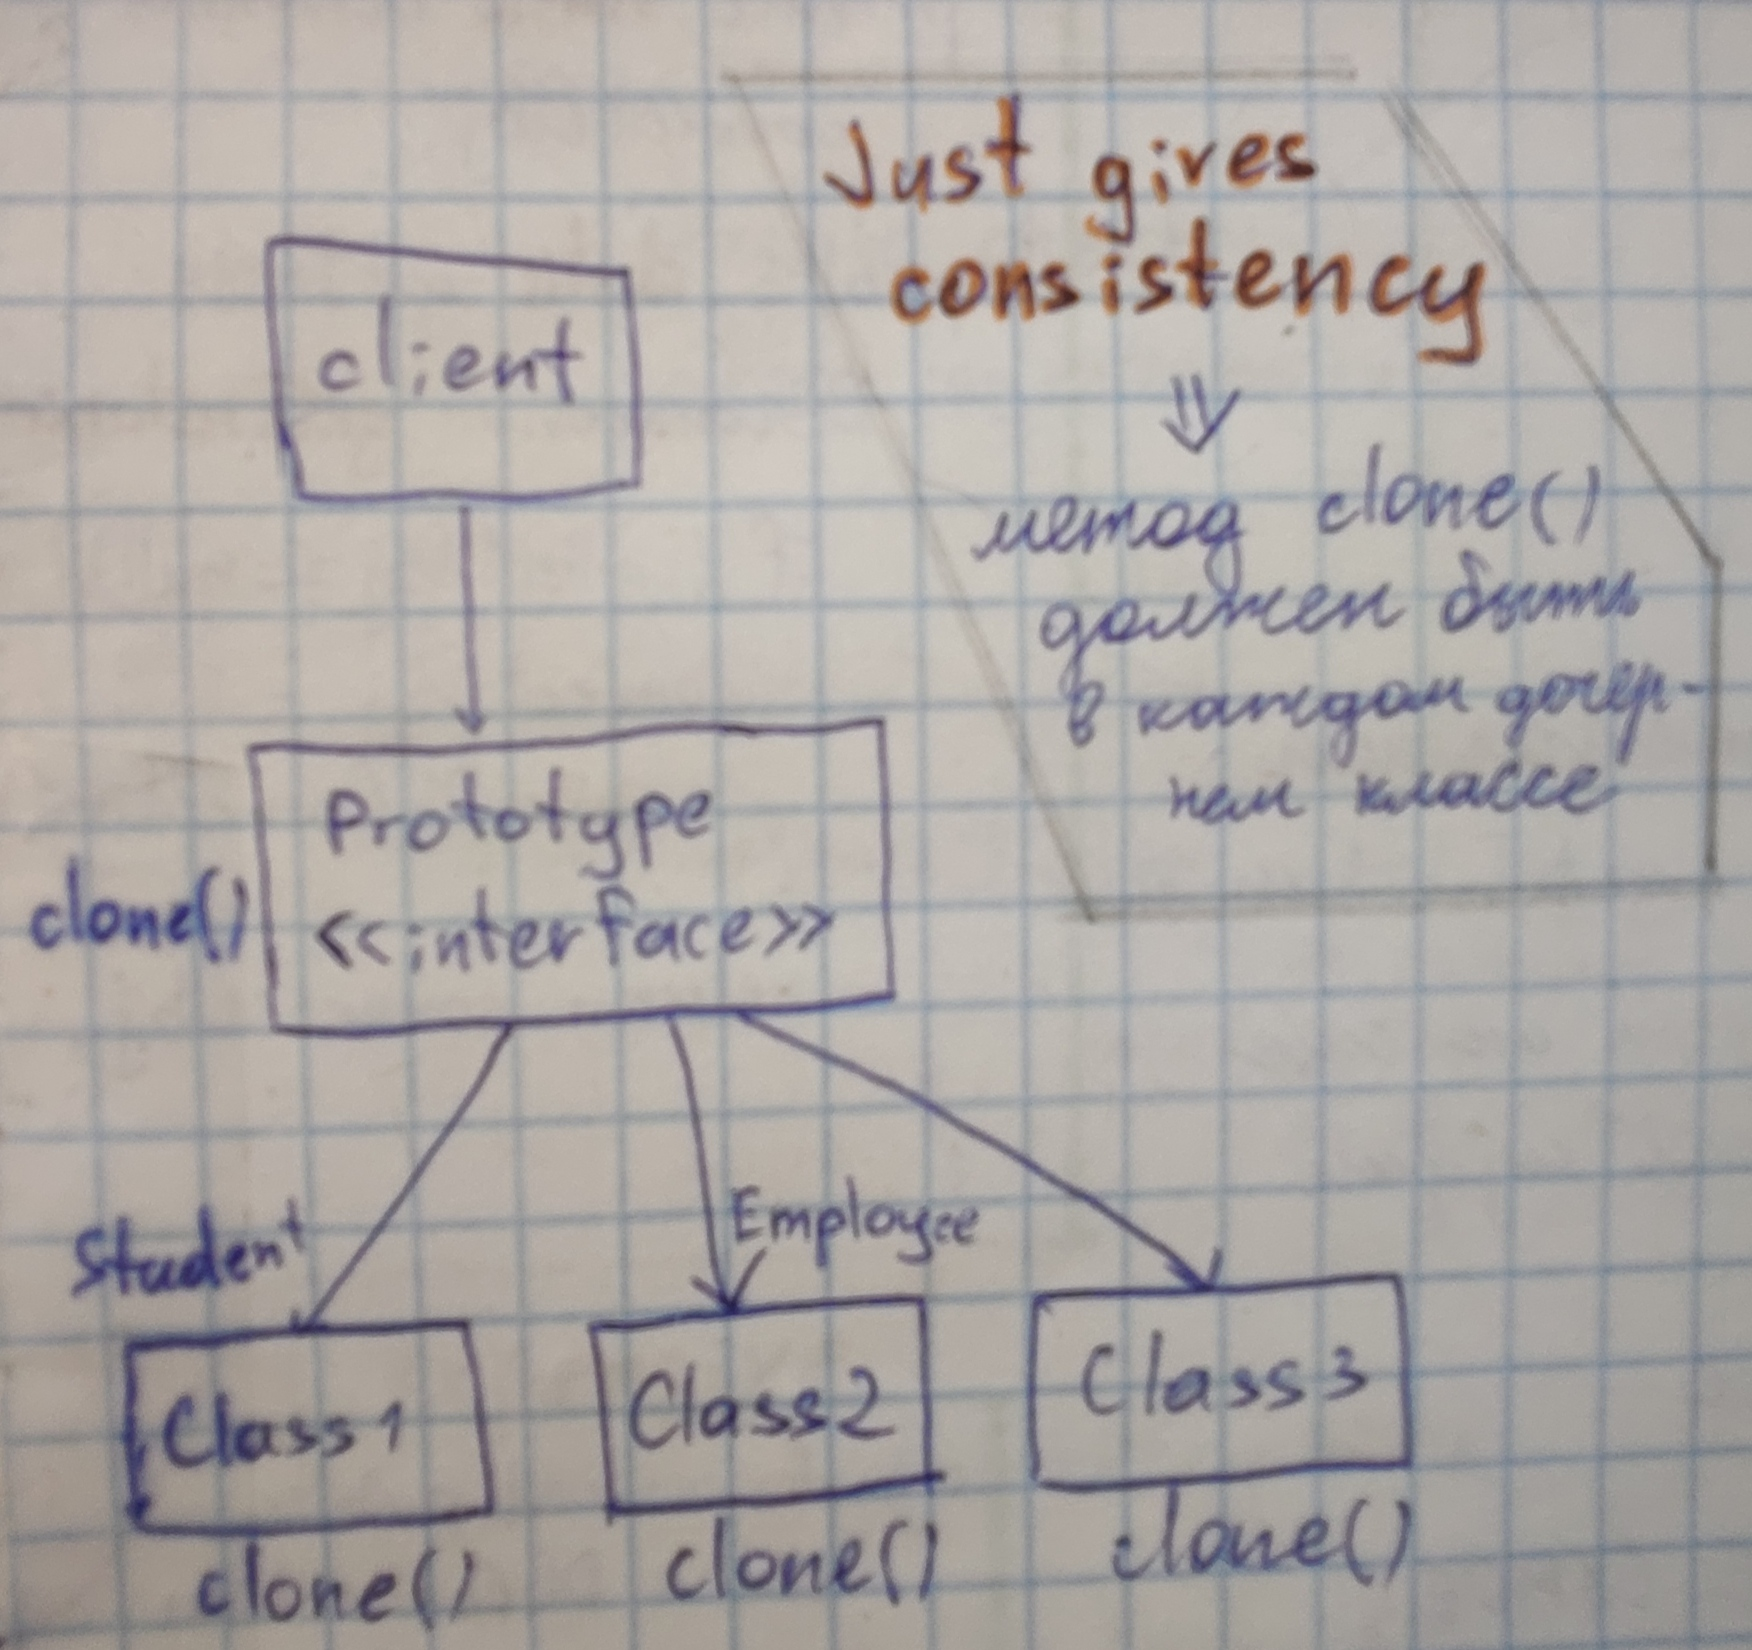 Just gives
consistency
⇓
метод clone()
должен быть
в каждом дочер-
нем классе
client
Prototype
<<interface>>
clone()
Student
Employee
Class1
Class2
Class3
clone()
clone()
clone()